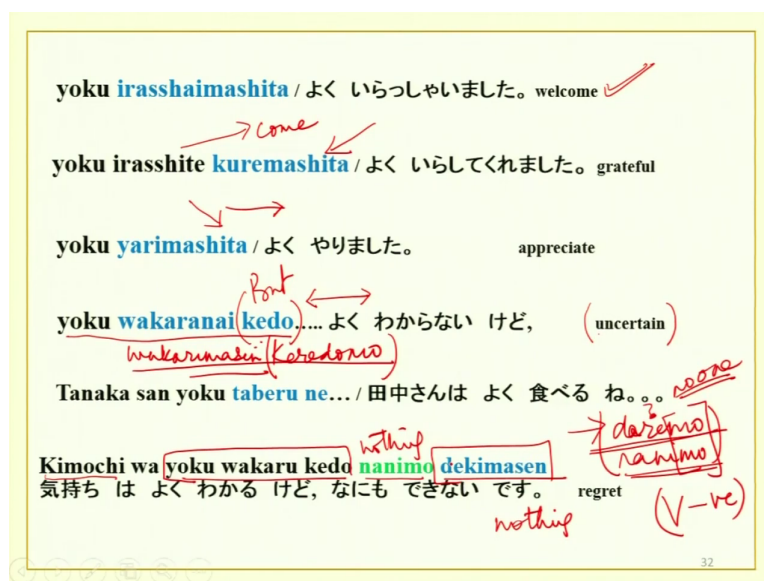 yoku irasshaimashita / よく いらっしゃいました。 welcome
come
yoku irasshite kuremashita / よく いらしてくれました。 grateful
yoku yarimashita / よく やりました。 appreciate
But
yoku wakaranai (kedo)..... よく わからない けど, (uncertain)
wakarimasen (Keredomo)
Tanaka san yoku taberu ne... / 田中さんは よく 食べる ね。。。
noone
daremo
nothing
(nanimo)
Kimochi wa yoku wakaru kedo nanimo dekimasen
気持ち は よく わかる けど, なにも できない です。 regret
(V-ve)
nothing
32